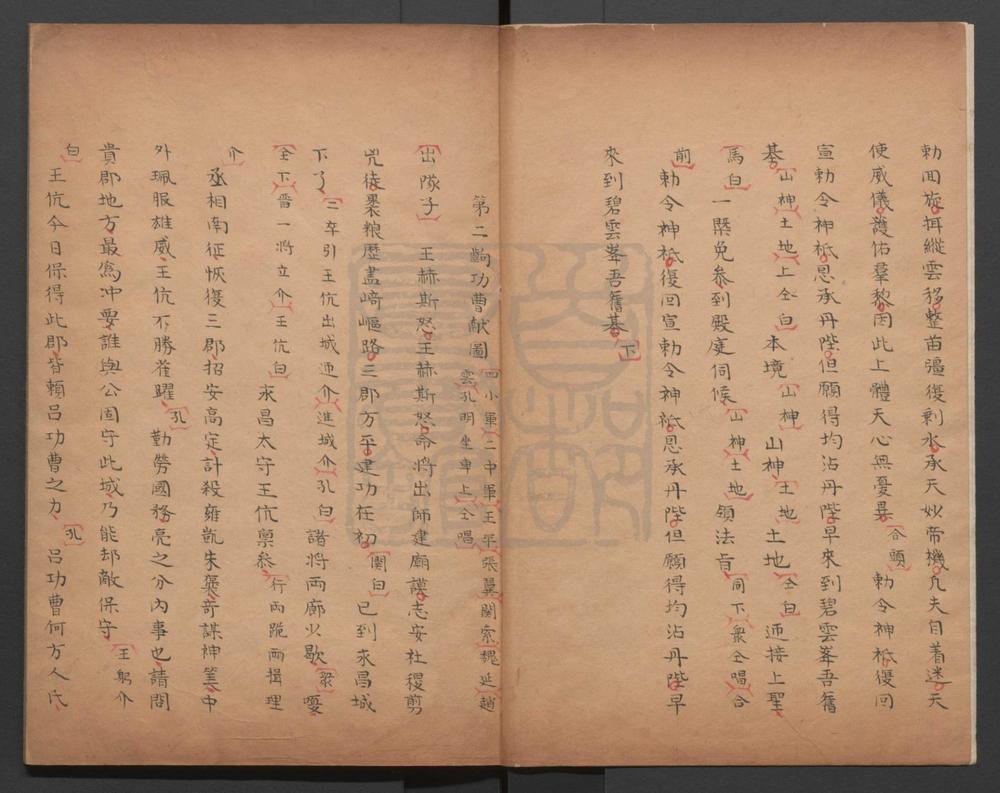 勅回旋拜縱雲移整苗彊復剩水承天妙帝機凡夫自着迷天
使威儀護佑羣黎因此上體天心無憂畏合頭勅令神祗復回
宣勅令神祗恩承丹陛但願得均沾丹陛早來到碧雲峯吾舊
基山神土地上仝白本境山神山神土地土地仝白迊接上聖
馬白一槩免叅到殿庭伺候山神土地領法旨同下衆仝唱合
前勅令神祗復回宣勅令神祗恩承丹陛但願得均沾丹陛早
來到碧雲峯吾舊基下
第二齣功曹献圖四小軍二中軍王平張翼関索魏延趙
雲孔明坐車上仝唱
出隊子王赫斯怒王赫斯怒命将出師建廟謨志安社稷剪
兇徒褁粮歴盡﨑嶇路三郡方平建功在初関白已到永昌城
下了三卒引王伉出城迊介進城介孔白諸将両廊少歇衆嗄
仝下晋一将立介王伉白永昌太守王伉禀叅行両跪両揖理
介丞相南征恢復三郡招安高定計殺雍凱朱褒竒謀神筭中
外珮服雄威王伉不勝雀躍孔勤勞國務亮之分內事也請問
貴郡地方最為冲要誰與公固守此城乃能却敵保守王躬介
白王伉今日保得此郡皆賴吕功曹之力孔吕功曹何方人氏